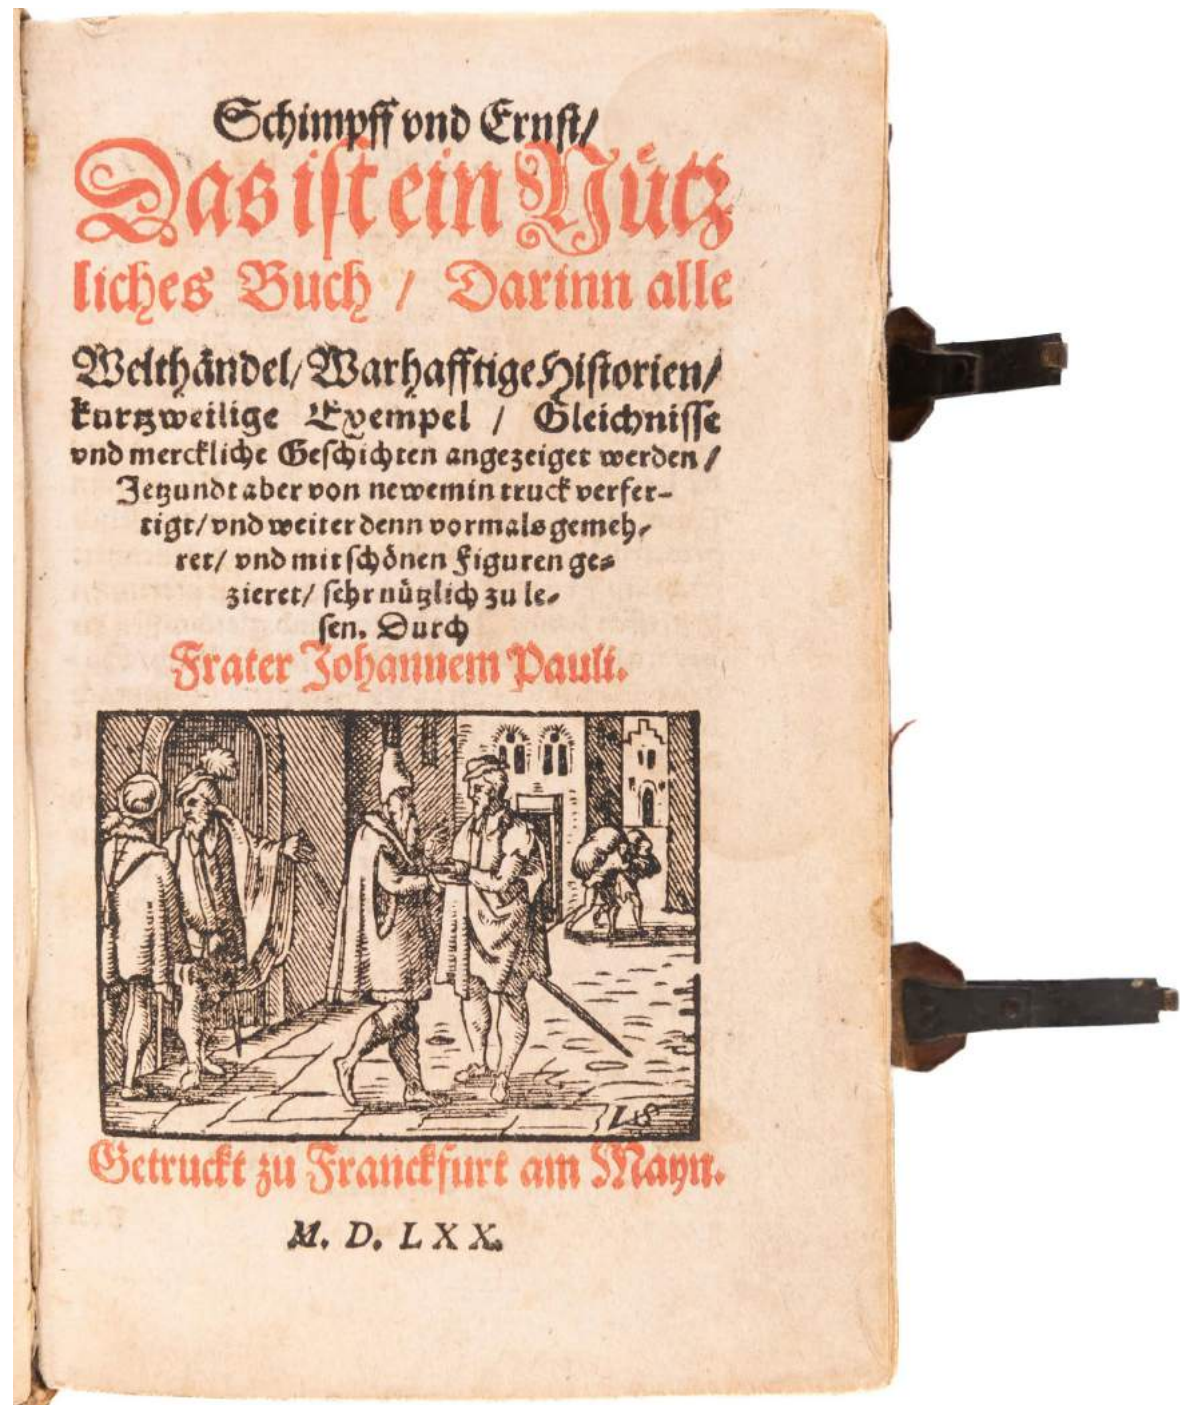 Schimpff vnd Ernst/
Das ist ein Nütz
liches Buch / Darinn alle
Welthändel/ Warhafftige Historien/
kurtzweilige Exempel / Gleichnisse
vnd merckliche Geschichten angezeiget werden /
Jetzundt aber von newem in truck verfer-
tigt/ vnd weiter denn vormals gemeh-
ret/ vnd mit schönen Figuren ge-
zieret/ sehr nützlich zu le-
sen. Durch
Frater Johannem Pauli.
Getruckt zu Franckfurt am Mayn.
M. D. L X X.